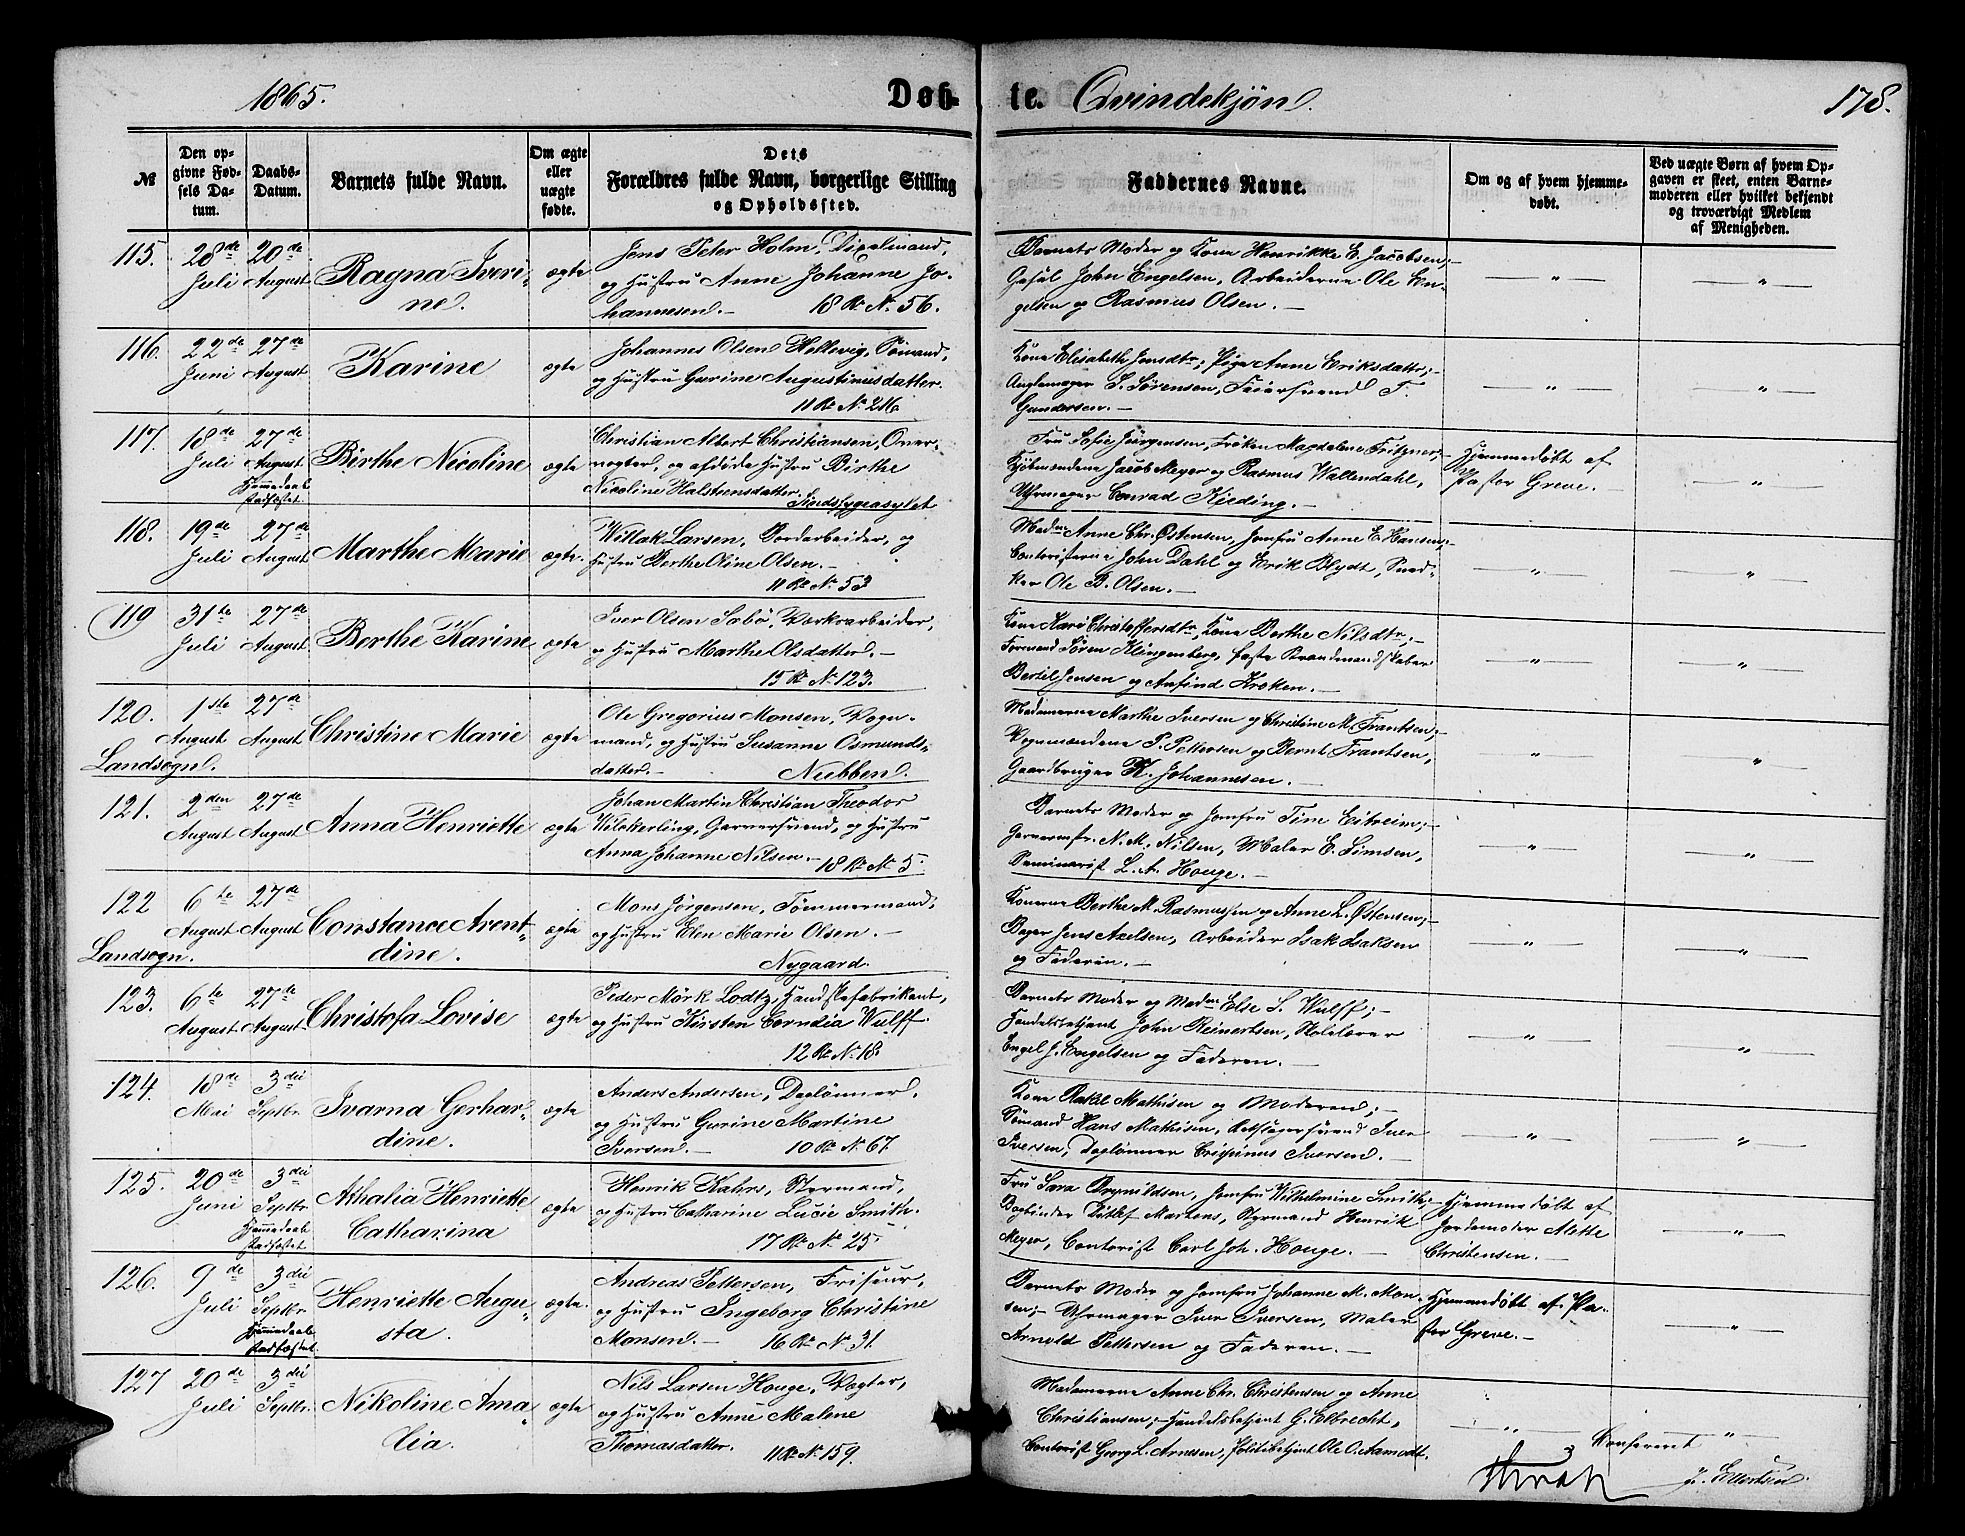 1865.
Døbte. Qvindekjøn.
178.
№
Den opgivne Fødsels Datum.
Daabs-Datum.
Barnets fulde Navn.
Om ægte eller uægte fødte.
Dets Forældres fulde Navn, borgerlige Stilling og Opholdssted.
Faddernes Navne.
Om og af hvem hjemmedøbt.
Ved uægte Børn af hvem Opgaven er skeet, enten Barnemoderen eller hvilket bekjendt og troværdigt Medlem af Menigheden.
115. 28de Juli 20de August Ragna Iverine. ægte
Jens Peter Holm,
og Hustru Anne Johanne Johannesen. – 18 R. N. 56.
Barnets Moder og Kone Henrikke E. Jacobsen; –
John Engelsen, Arbeiderne Ole Engelsen og Rasmus Olsen. –
116. 22de Juni 27de August Karine ægte
Johannes Olsen Hellevig, Sømand,
og Hustru Gurine Augustinusdatter.
11 R. N. 216
Kone Elisabeth Jensdtr; Pige Anne Eriksdatter; –
S. Sørensen, T. Gundersen. –
117. 18de Juli 27de August Hjemmedaab stadfæstet. Birthe Nicoline ægte
Christian Albert Christiansen, Overvogter, og afdøde Hustru Birthe
Nicoline Halstensdatter. Sindssygeasylet
Fru Sofie Jürgensen, Frøken Magdalene Fritzner; –
Kjøbmændene Jacob Meyer og Rasmus Wallendahl,
Uhrmager Conrad Kieding. –
Hjemmedøbt af
Pastor Greve. –
118. 19de Juli 27de August Marthe Marie ægte.
Willak Larsen, Jordarbeider, og
Hustru Berthe Oline Olsen. –
11 R. N. 53
Madme Anne Chr. Østensen, Jomfru Anne E. Hansen; –
Contoristerne John Dahl og Erik Blydt, Snedker Ole B. Olsen. –
119 31te Juli 27de August Berthe Karine ægte
Iver Olsen Sæbø, Værksarbeider,
og Hustru Marthe Olsdatter. –
15 R. N. 123.
Kone Kari Christoffersdtr, Kone Berthe Nilsdtr; –
Formand Søren Klingenberg, faste Brandmandskaber
Bertil Jensen og Anfind Kroken. –
120. Landsogn. 1ste August 27de August Christine Marie ægte
Ole Gregorius Monsen, Vognmand, og Hustru Susanne Osmundsdatter. – Nubben.
Madamerne Marthe Iversen og Christine M. Frantsen; –
Vognmændene P. Pettersen og Bernt Frantsen,
Gaardbruger K. Johannesen. –
121. 2den August 27de August Anna Henriette ægte
Johan Martin Christian Theodor
Wilckerling, Garversvend, og Hustru
Anna Johanne Nilsen. – 18 R. N. 5.
Barnets Moder og Jomfru Tine Eitreim; –
Garvermstr. N. M. Nilsen, Maler E. Simsen,
Seminarist L. A. Houge. –
122 Landsogn. 6te August 27de August Constance Arentdine. ægte
Mons Jørgensen, Tømmermand,
og Hustru Elen Marie Olsen. –
Nygaard.
Konerne Berthe M. Rasmussen og Anne L. Østensen; –
Bager Jens Axelsen, Arbeider Isak Isaksen
og Faderen. –
123. 6te August 27de August Christofa Lovise ægte
Peder Mørk Lodtz, Handskefabrikant,
og Hustru Kirsten Cornelia Wulff.
12 R. N. 18.
Barnets Moder og Madme Else S. Wulff; –
Handelsbetjent John Reinertsen,
Engel J. Engelsen og Faderen. –
124. 18de Mai 3die Septbr. Ivarna Gerhardine. ægte
Anders Andersen, Daglønner,
og Hustru Gurine Martine
Iversen. – 10 R. N. 67.
Kone Rakel Mathisen og Moderen; –
Sømand Hans Mathisen, Iver
Iversen, Daglønner Crispinus Iversen. –
125. 20de Juni 3die Septbr. Hjemmedaab stadfæstet Athalia Henriette Catharina ægte
Henrik Kahrs, Styrmand,
og Hustru Catharine Lucie Smith.
17 R. N. 25.
Fru Sara Brynildsen, Jomfru Wilhelmine Smith; –
Bogbinder Ditlef Martens, Styrmand Henrik
Meyer, Contorist Carl Joh. Houge. –
Hjemmedøbt af
Jordemoder Mette
Christensen. –
126. 9de Juli 3die Septbr. Hjemmedaab stadfæstet. Henriette Augusta. ægte.
Andreas Pettersen, Friseur,
og Hustru Ingeborg Christine
Monsen. – 16 R. N. 31.
Barnets Moder og Jomfru Johanne M. Monsen; – Uhrmager Iver Iversen, Maler
Arnold Pettersen og Faderen. –
Hjemmedøbt af Pastor Greve. –
127 20de Juli 3die Septbr. Nikoline Amalia. ægte
Nils Larsen Houge, Vægter,
og Hustru Anne Malene
Thomasdatter. 11 R. N. 159.
Madamerne Anne Chr. Christensen og Anne
Christiansen; – Handelsbetjent G. Elbrecht,
Contorist Georg L. Arnesen, Politibetjent Ole O. Aamodt.
Konfereret
J. Ellertsen